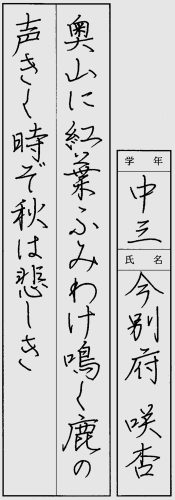 奥山に紅葉ふみわけ鳴く鹿の
声きく時ぞ秋は悲しき
学年
中三
氏名
今別府 咲杏